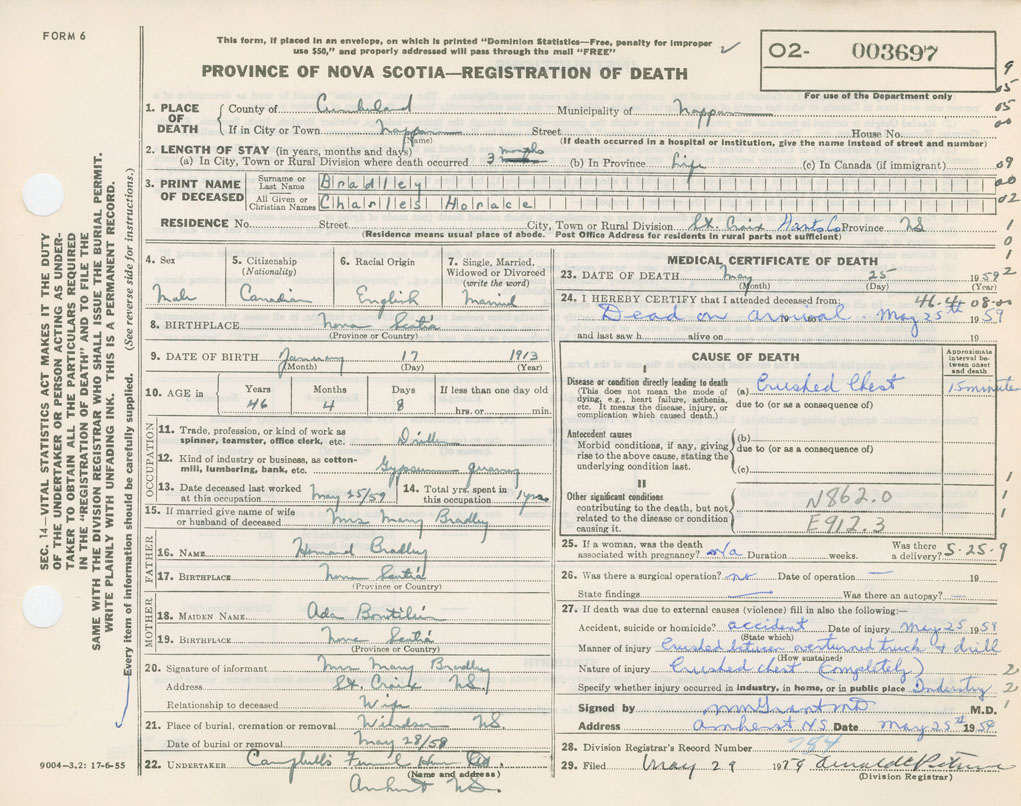 FORM 6
This form, if placed in an envelope, on which is printed "Dominion Statistics—Free, penalty for improper
use $50," and properly addressed will pass through the mail "FREE"
O2- 003697
For use of the Department only
PROVINCE OF NOVA SCOTIA—REGISTRATION OF DEATH
SEC. 14—VITAL STATISTICS ACT MAKES IT THE DUTY
OF THE UNDERTAKER OR PERSON ACTING AS UNDER-
TAKER TO OBTAIN ALL THE PARTICULARS REQUIRED
IN THE "REGISTRATION OF DEATH" AND TO FILE THE
SAME WITH THE DIVISION REGISTRAR WHO SHALL ISSUE THE BURIAL PERMIT.
WRITE PLAINLY WITH UNFADING INK. THIS IS A PERMANENT RECORD.
Every item of information should be carefully supplied. (See reverse side for instructions.)
1. PLACE OF DEATH
County of Cumberland Municipality of Nappan
If in City or Town Nappan Street House No.
(Name) (If death occurred in a hospital or institution, give the name instead of street and number)
2. LENGTH OF STAY (in years, months and days)
(a) In City, Town or Rural Division where death occurred 3 months (b) In Province Life (c) In Canada (if immigrant)
3. PRINT NAME OF DECEASED
Surname or Last Name Bradley
All Given or Christian Names Charles Horace
RESIDENCE No. Street City, Town or Rural Division St. Croix Hants Co Province NS
(Residence means usual place of abode. Post Office Address for residents in rural parts not sufficient)
4. Sex
Male
5. Citizenship (Nationality)
Canadian
6. Racial Origin
English
7. Single, Married, Widowed or Divorced (write the word)
Married
8. BIRTHPLACE Nova Scotia
(Province or Country)
9. DATE OF BIRTH January 17 1913
(Month) (Day) (Year)
10. AGE in Years 46 Months 4 Days 8 If less than one day old hrs. or min.
OCCUPATION
11. Trade, profession, or kind of work as
spinner, teamster, office clerk, etc. Driller
12. Kind of industry or business, as cotton-
mill, lumbering, bank, etc. Gypsum quarry
13. Date deceased last worked
at this occupation May 25/59
14. Total yrs. spent in
this occupation 1 yrs.
15. If married give name of wife
or husband of deceased Mrs Mary Bradley
FATHER
16. NAME Howard Bradley
17. BIRTHPLACE Nova Scotia
(Province or Country)
MOTHER
18. MAIDEN NAME Ada Boutilier
19. BIRTHPLACE Nova Scotia
(Province or Country)
20. Signature of informant Mrs Mary Bradley
Address St. Croix NS.
Relationship to deceased Wife
21. Place of burial, cremation or removal Windsor NS.
Date of burial or removal May 28/59
22. UNDERTAKER Campbells Funeral Home Ltd.
(Name and address)
Amherst NS.
9004—3.2: 17-6-55
MEDICAL CERTIFICATE OF DEATH
23. DATE OF DEATH May 25 1959
(Month) (Day) (Year)
24. I HEREBY CERTIFY that I attended deceased from: 46-4-08-00
Dead on arrival May 25th 1959
and last saw h alive on 19
CAUSE OF DEATH
Approximate interval between onset and death
I
Disease or condition directly leading to death
(This does not mean the mode of
dying, e.g., heart failure, asthenia,
etc. It means the disease, injury, or
complication which caused death.)
(a) Crushed Chest 15 minutes
due to (or as a consequence of)
Antecedent causes
Morbid conditions, if any, giving
rise to the above cause, stating the
underlying condition last.
(b)
due to (or as a consequence of)
(c)
II
Other significant conditions
contributing to the death, but not
related to the disease or condition
causing it.
N862.0
E912.3
25. If a woman, was the death
associated with pregnancy? n/a Duration weeks. Was there
a delivery? 5-25-9
26. Was there a surgical operation? no Date of operation — 19
State findings — Was there an autopsy? —
27. If death was due to external causes (violence) fill in also the following:—
Accident, suicide or homicide? accident Date of injury May 25 1959
(State which)
Manner of injury Crushed between overturned truck & drill
(How sustained)
Nature of injury Crushed chest (completely)
Specify whether injury occurred in industry, in home, or in public place Industry
Signed by M.D.
Address Amherst NS Date May 25th 1959
28. Division Registrar's Record Number 754
29. Filed May 29 1959
(Division Registrar)